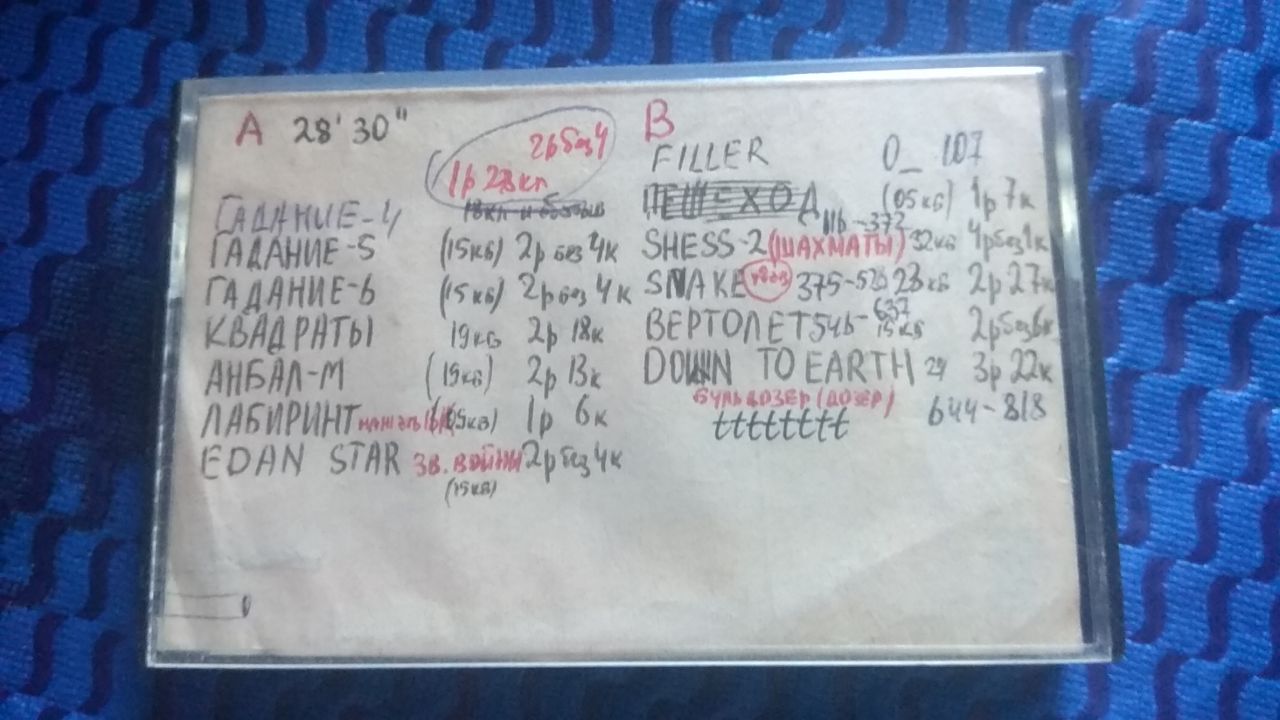 A 28' 30"
2р без 4
1р 28 кл
ГАДАНИЕ-4
ГАДАНИЕ-5 (15кб) 2р без 4к
ГАДАНИЕ-6 (15кб) 2р без 4к
КВАДРАТЫ 19кб 2р 18к
АНБАЛ-М (19кб) 2р 13к
ЛАБИРИНТ 1р 6к
EDAN STAR ЗВ. ВОЙНЫ 2р без 4к
(15кб)
B
FILLER 0_ 107
ПЕШЕХОД (05кб) 1р 7к
116-372
SHESS-2 (ШАХМАТЫ) 32кб 4р без 1к
SNAKE 375-520 23кб 2р 27к
637
ВЕРТОЛЕТ 546- 15кб 2р без 6к
DOWN TO EARTH 29 3р 22к
БУЛЬДОЗЕР (ДОЗЕР)
tttttttt 644-818